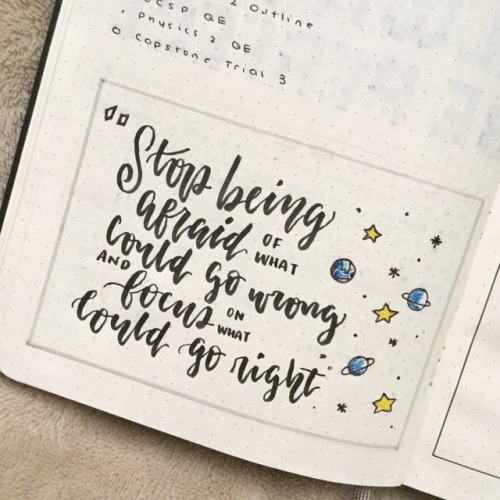 2 Outline
CSP QE
Physics 2 QE
Capstone Trial 3
"Stop being
afraid OF WHAT
could go wrong
AND focus ON WHAT
could go right"